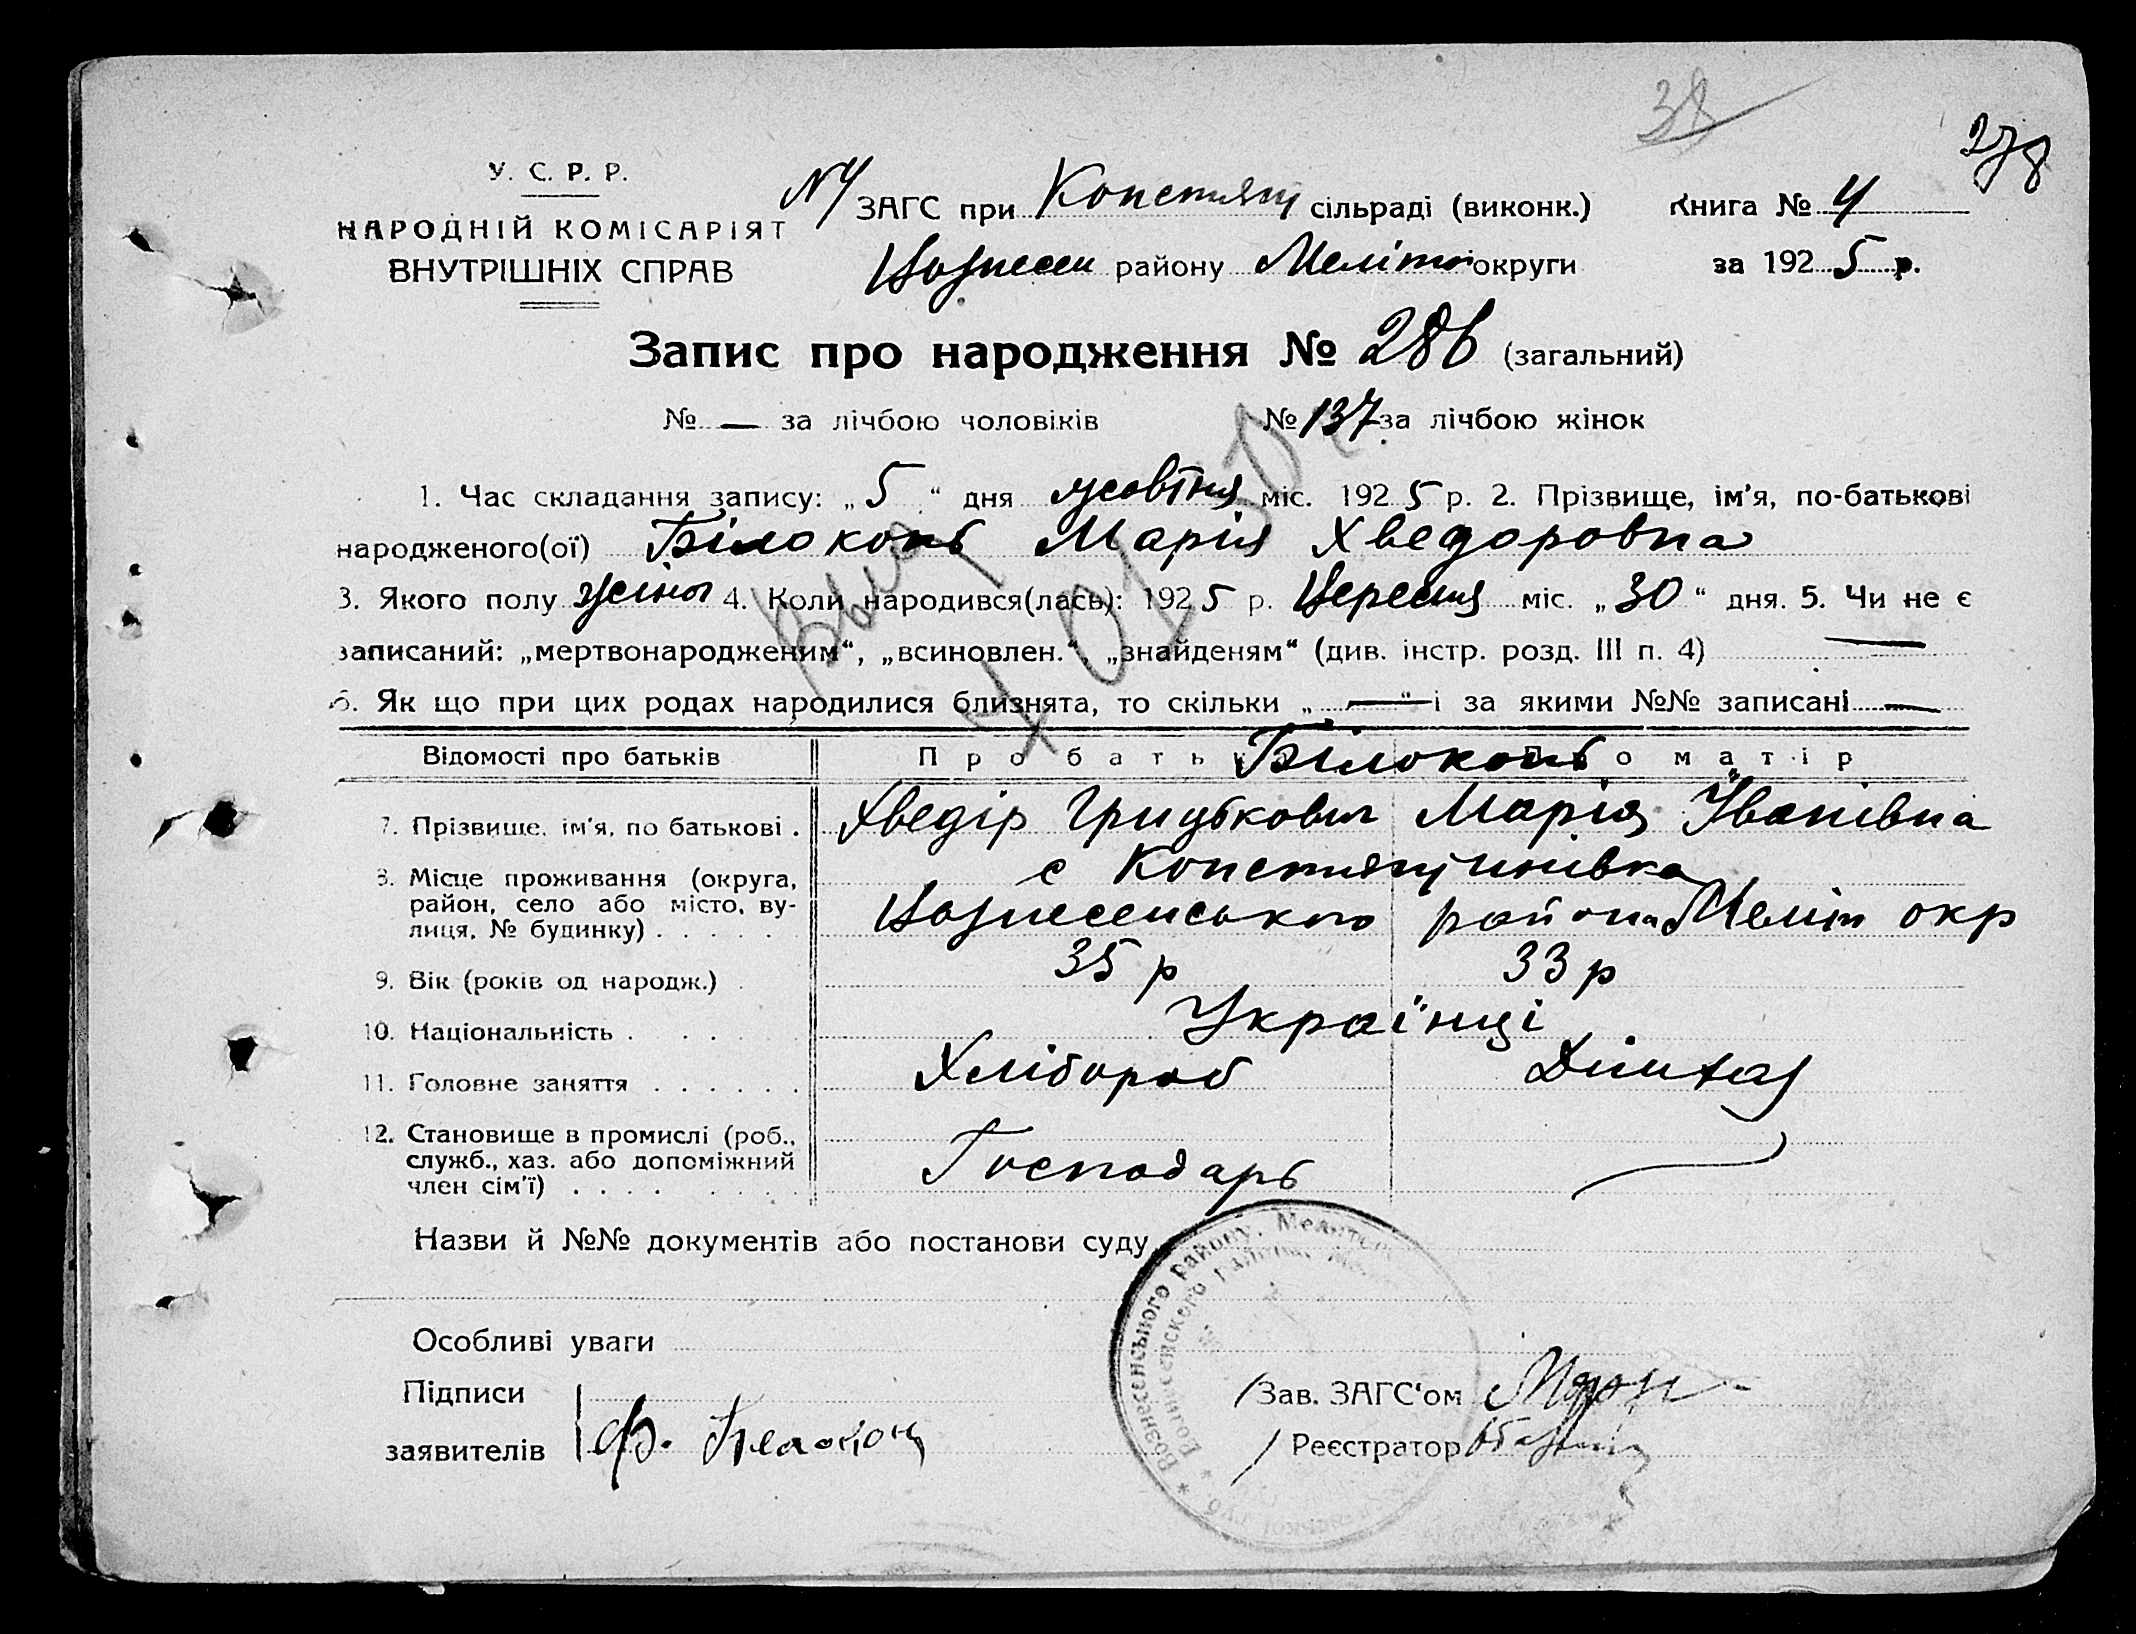 38
278
У. С. Р. Р.
НАРОДНІЙ КОМІСАРІЯТ
ВНУТРІШНІХ СПРАВ
N4 ЗАГС при Констянт сільраді (виконк.) Книга № 4
Вознесен району Меліт округи за 192 5 р.
Запис про народження № 286 (загальний)
№ — за лічбою чоловіків № 137 за лічбою жінок
1. Час складання запису: „ 5 “ дня жовтня міс. 192 5 р. 2. Прізвище, ім'я, по-батькові
народженого(ої) Білоконь Марія Хведоровна
3. Якого полу жіноч 4. Коли народився(лась): 192 5 р. Вересня міс. „ 30 “ дня. 5. Чи не є
записаний: „мертвонародженим“, „всиновлен.“, „знайденям“ (див. інстр. розд. III п. 4) —
6. Як що при цих родах народилися близнята, то скільки „ — “ і за якими №№ записані —
Відомості про батьків Про батька Білоконь Про матір
7. Прізвище, ім'я, по батькові . Хведір Грицькович Марія Іванівна
8. Місце проживання (округа, район, село або місто, вулиця, № будинку) . . . . . с Констянтинівка
Вознесенського района Меліт окр
9. Вік (років од народж.) . 35 р 33 р
10. Національність . . . . Українці
11. Головне заняття . . . . . . Хлібороб Дішхоз
12. Становище в промислі (роб.,
служб., хаз. або допоміжний
член сім'ї) . . . . . . . . Господарь —
Назви й №№ документів або постанови суду
Особливі уваги
Підписи
заявителів Ф. Белоконь
Зав. ЗАГС'ом
Реєстратор
Вознесенського району, Мелитоп
Вознесенского района